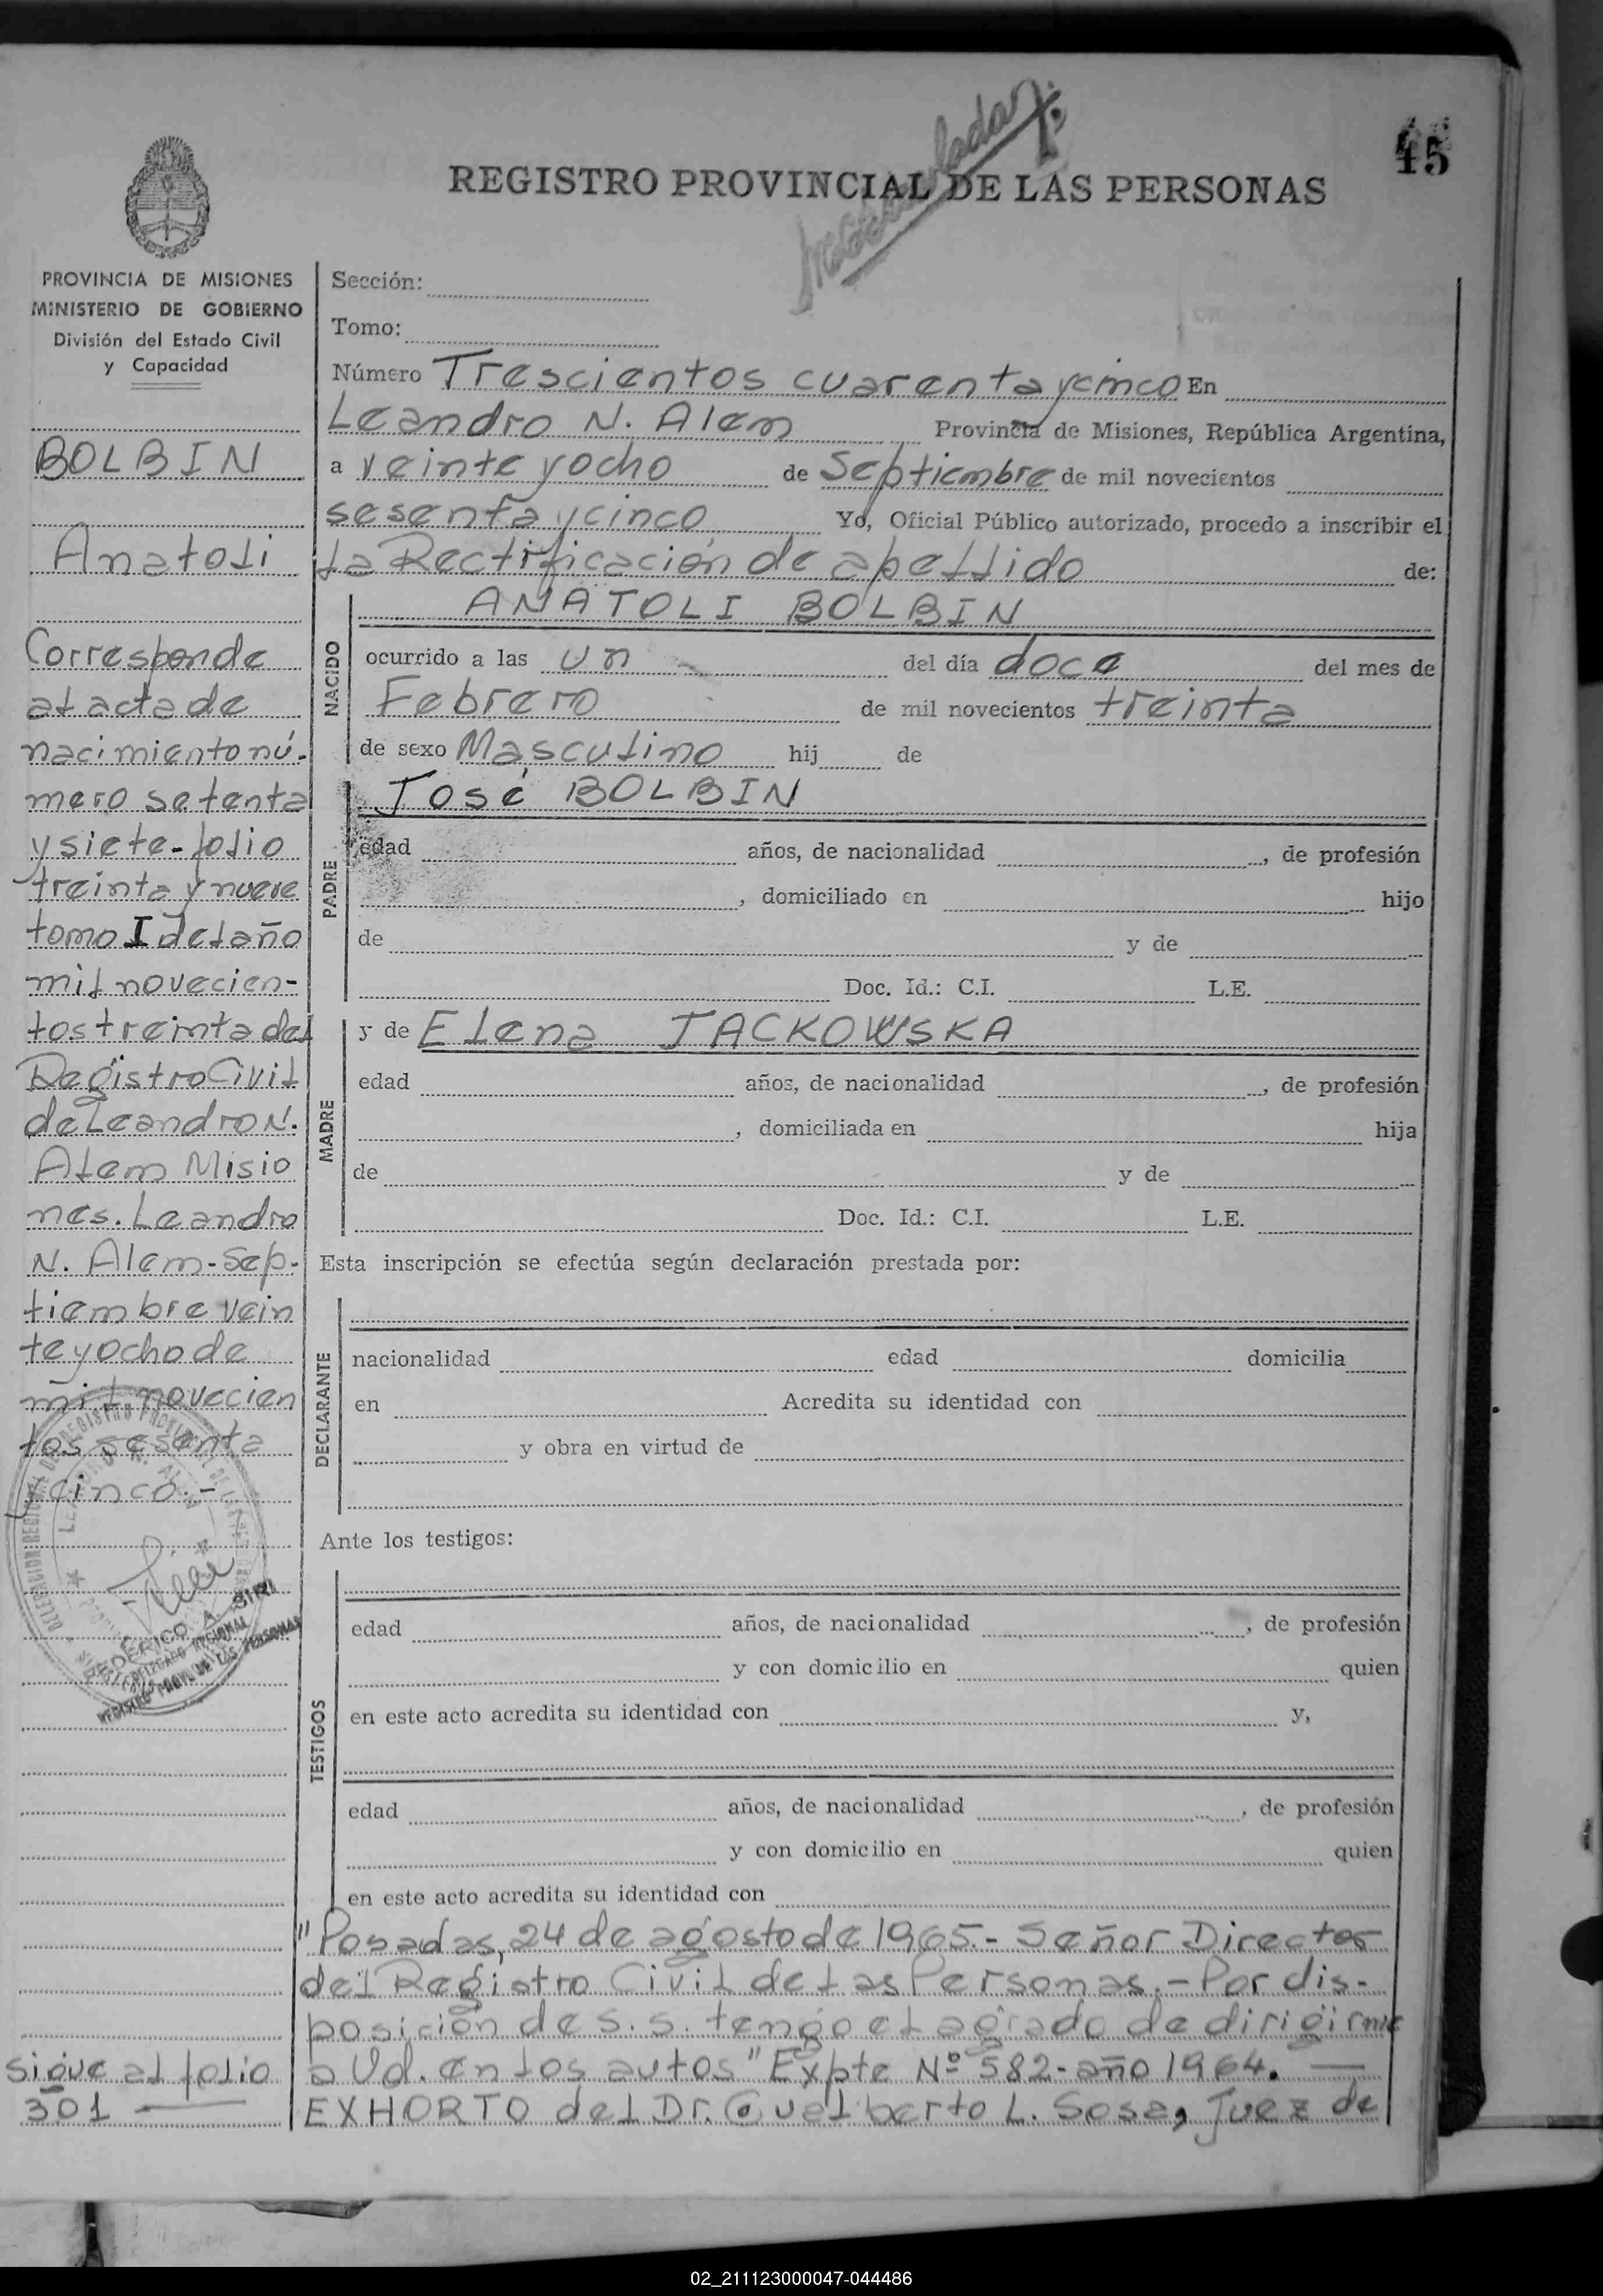 45
REGISTRO PROVINCIAL DE LAS PERSONAS
PROVINCIA DE MISIONES
MINISTERIO DE GOBIERNO
División del Estado Civil
y Capacidad
BOLBIN
Anatoli
Corresponde
al acta de
nacimiento nú-
mero setenta
y siete-folio
treinta y nueve
tomo I del año
mil novecien-
tos treinta del
Registro Civil
de Leandro N.
Alem Misio
nes. Leandro
N. Alem-Sep-
tiembre vein
te y ocho de
mil novecien
tos sesenta
y cinco.-
FEDERICO A. SIRI
DELEGADO REGIONAL
REGISTRO PROV. DE LAS PERSONAS
sigue al folio
301
Sección:
Tomo:
Número Trescientos cuarenta y cinco En
Leandro N. Alem Provincia de Misiones, República Argentina,
a veinte y ocho de Septiembre de mil novecientos
sesenta y cinco Yo, Oficial Público autorizado, procedo a inscribir el
la Rectificación de apellido de:
ANATOLI BOLBIN
NACIDO
ocurrido a las un del día doce del mes de
Febrero de mil novecientos treinta
de sexo Masculino hij de
José BOLBIN
PADRE
edad años, de nacionalidad , de profesión
, domiciliado en hijo
de y de
Doc. Id.: C.I. L.E.
y de Elena JACKOWSKA
MADRE
edad años, de nacionalidad , de profesión
, domiciliada en hija
de y de
Doc. Id.: C.I. L.E.
Esta inscripción se efectúa según declaración prestada por:
DECLARANTE
nacionalidad edad domicilia
en Acredita su identidad con
y obra en virtud de
Ante los testigos:
TESTIGOS
edad años, de nacionalidad , de profesión
y con domicilio en quien
en este acto acredita su identidad con y,
edad años, de nacionalidad , de profesión
y con domicilio en quien
en este acto acredita su identidad con
"Posadas, 24 de agosto de 1965.- Señor Director
del Registro Civil de las Personas.- Por dis-
posición de S. S. tengo el agrado de dirigirme
a Ud. en los autos "Expte Nº 582-año 1964. —
EXHORTO del Dr. Guelberto L. Sosa, Juez de
02_211123000047-044486